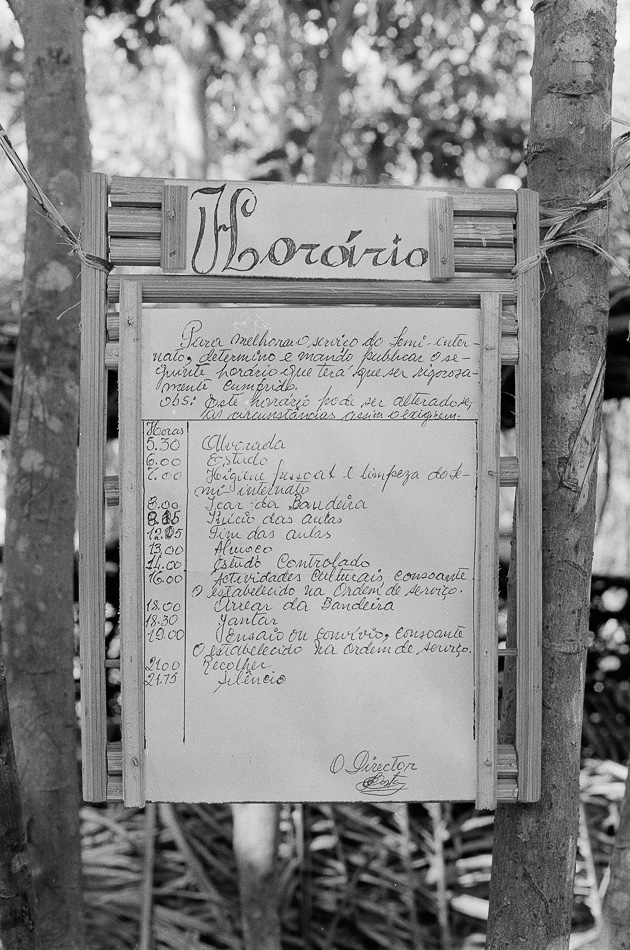 Horário
Para melhorar o serviço do Semi-inter-
nato, determino e mando publicar o se-
guinte horário que terá que ser rigorosa-
mente cumprido.
Obs: Este horário pode ser alterado se,
as circunstâncias assim o exigirem.
Horas
5.30 Alvorada
6.00 Estudo
7.00 Higiene pessoal e limpeza do Se-
mi-internato
8.00 Içar da Bandeira
8.15 Início das aulas
12.15 Fim das aulas
13.00 Almoço
14.00 Estudo Controlado
16.00 Actividades Culturais, consoante
O estabelecido na Ordem de serviço.
18.00 Arrear da Bandeira
18.30 Jantar
19.00 Ensaio ou convívio, consoante
O estabelecido na Ordem de serviço.
21.00 Recolher
21.15 Silêncio
O Director